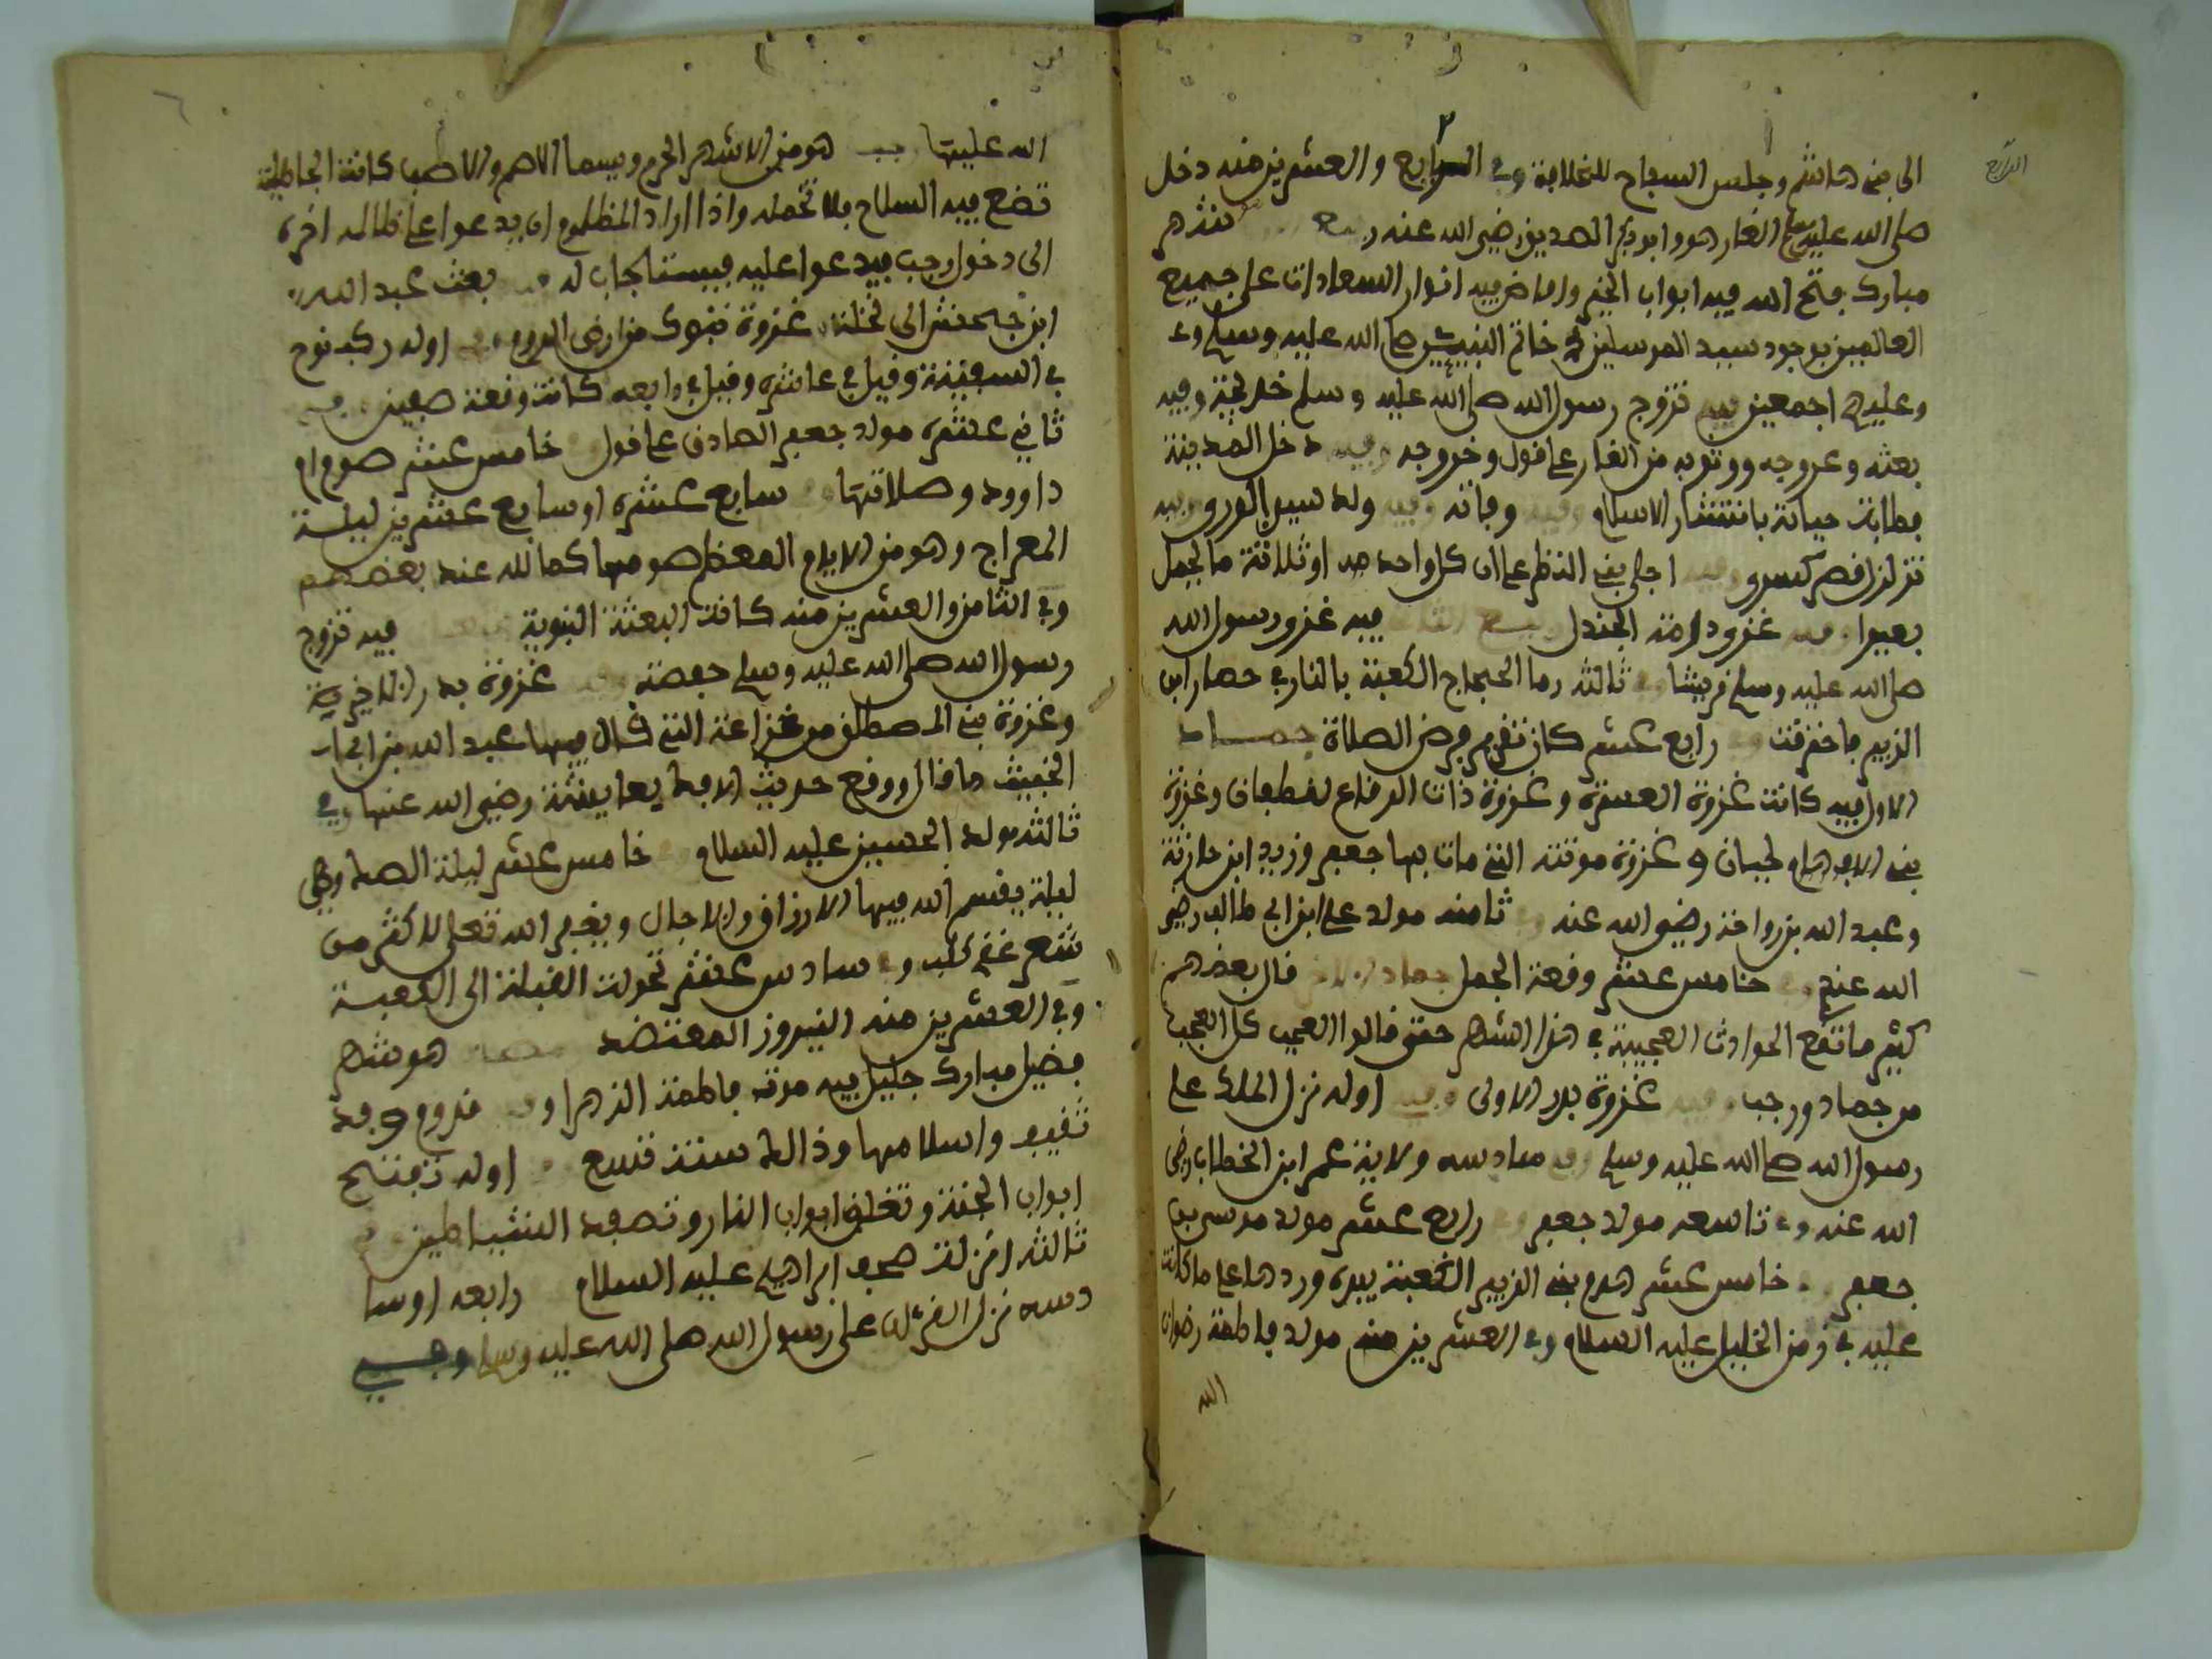 الرابع
الى بني هاشم وجلس السفاح للخلافة وفي الرابع والعشرين منه دخل
صلى الله عليه وسلم الغار هو وابو بكر الصديق رضي الله عنه ربيع شهر
مبارك فتح الله فيه ابواب الخير وافاض فيه انوار السعادات على جميع
العالمين بوجود سيد المرسلين خاتم النبيين صلى الله عليه وسلم و
وعليهم اجمعين فيه تزوج رسول الله صلى الله عليه وسلم خديجة وفيه
بعثه وعروجه ووثوبه من الغار على قول وخروجه وفيه دخل المدينة
فطابت حياته بانتشار الاسلام وفيه وفاته وفيه ولد سيد الورى وفيه
تزلزل قصر كسرى وفيه اجلى بني النظر على ان كل واحد منه او ثلاثة ما لحمل
بعيرا وفيه غزوة دومة الجندل ربيع الثاني فيه غزو رسول الله
صلى الله عليه وسلم قريشا وفي ثالثه رما الحجاج الكعبة بالنار في حصار ابن
الزبير فاحترقت وفي رابع عشر كان تقرير فرض الصلاة جماد
الاول فيه كانت غزوة العسرة وغزوة ذات الرقاع لغطفان وغزوة
بني لحيان وغزوة موتة التي مات بها جعفر وزيد ابن حارثة
وعبد الله بن رواحة رضي الله عنه وفي ثامنه مولد علي ابن ابي طالب رضي
الله عنه وفي خامس عشر وقعة الجمل جماد الاخر قال بعضهم
كثير ما تقع الحوادث العجيبة في هذا الشهر حتى قالوا العجب كل العجب
من جماد ورجب وفيه غزوة بدر الاولى وفيه اوله نزل الملك على
رسول الله صلى الله عليه وسلم وفي سادسه ولاية عمر ابن الخطاب رضي
الله عنه وفي تاسعه مولد جعفر وفي رابع عشر مولد موسى بن
جعفر وفي خامس عشر هدم بني الزبير الكعبة بيده وردها على ما كانت
عليه في زمن الخليل عليه السلام وفي العشرين منه مولد فاطمة رضوان
الله
الله عليها رجب هو من الاشهر الحرم ويسما الاصم والاصب كانت الجاهلية
تضع فيه السلاح فلا تحمله واذا اراد المظلوم ان يدعوا على ظالمه اخره
الى دخول رجب فيدعوا عليه فيستجاب له وفيه بعث عبد الله
ابن جحش الى نخلة وغزوة تبوك من ارض الروم وفي اوله ركب نوح
في السفينة وقيل في عاشره وقيل في رابعه كانت وقعة صفين وفي
ثاني عشره مولد جعفر الصادق على قول وفي خامس عشر صوم ام
داوود وصلاتها وفي سابع عشره او سابع عشرين ليلة
المعراج وهو من الايام المعظم صومها كمالك عند بعضهم
وفي الثامن والعشرين منه كانت البعثة النبوية شعبان فيه تزوج
رسول الله صلى الله عليه وسلم حفصة وفيه غزوة بدر الاخيرة
وغزوة بني المصطلق من خزاعة التي قال فيها عبد الله بن ابي
الخبيث ما قال ووقع حديث الافك بعايشة رضي الله عنها وفي
ثالثه مولد الحسين عليه السلام وفي خامس عشر ليلة الصك وهي
ليلة يقسم الله فيها الارزاق والاجال ويغفر الله تعلى لاكثر من
شعر غنم كلب وفي سادس عشر تحولت القبلة الى الكعبة
وفي العشرين منه النيروز المعتضد رمضان هو شهر
فضيل مبارك جليل فيه موت فاطمة الزهرا وفيه قدوم وفد
ثقيف واسلامها وذالك سنة تسع وفي اوله تفتح
ابواب الجنة وتغلق ابواب النار وتصفد الشياطين وفي
ثالثه انزلت صحف ابراهيم عليه السلام وفي رابعه او سا
دسه نزل القرءان على رسول الله صلى الله عليه وسلم وفي